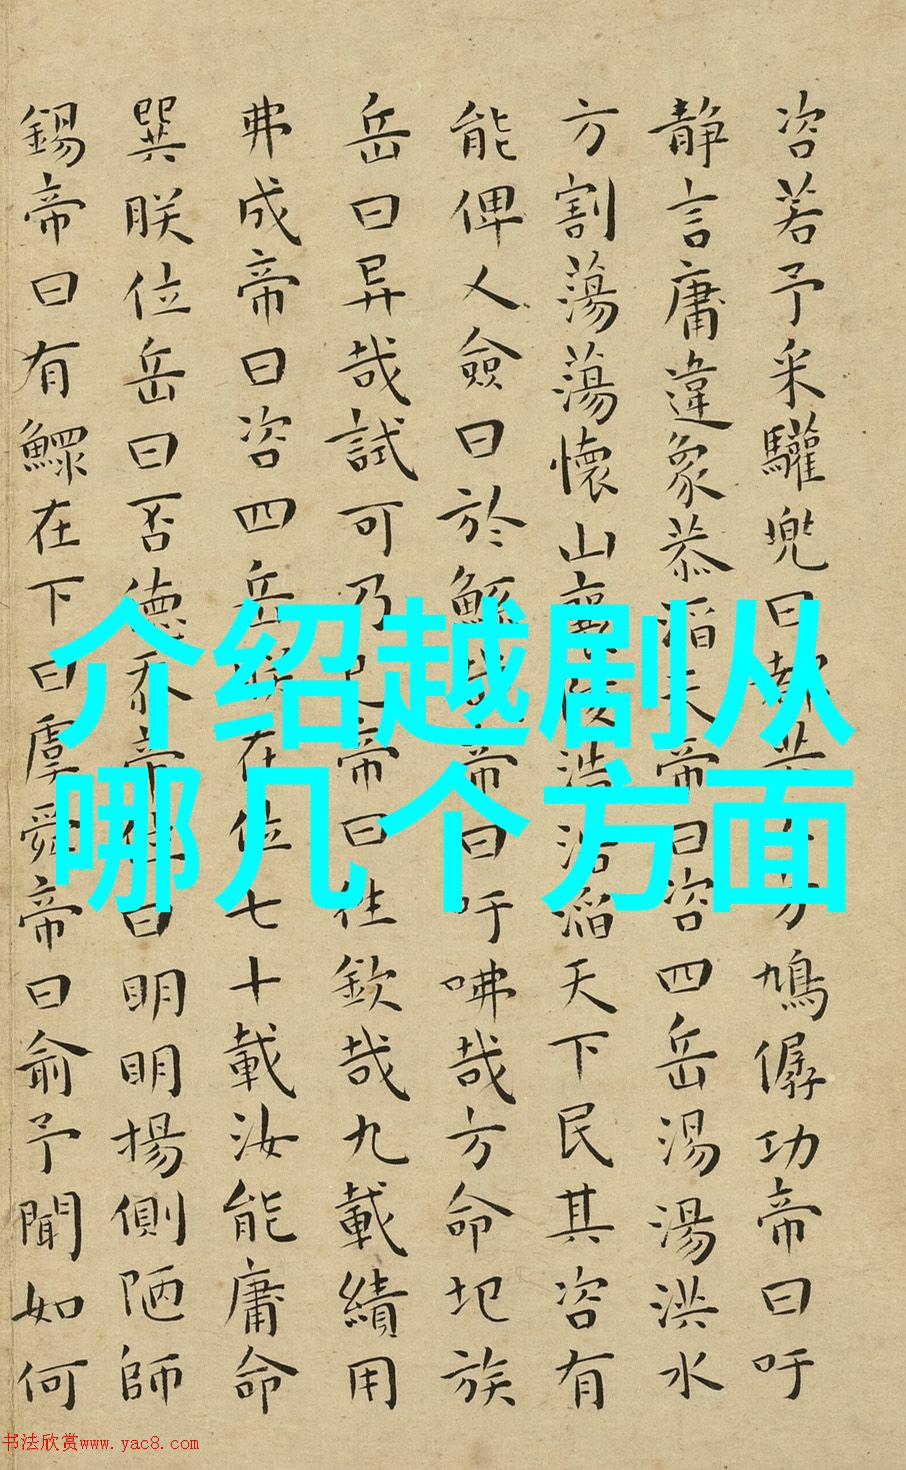 咨若予采驩兜曰都方鳩僝功帝曰吁
静言庸違象恭滔天帝曰咨四岳湯湯洪水
方割蕩蕩懷山襄陵浩浩滔天下民其咨有
能俾乂僉曰於鯀哉帝曰吁咈哉方命圮族
岳曰异哉試可乃已帝曰往欽哉九載績用
弗成帝曰咨四岳朕在位七十載汝能庸命
巽朕位岳曰否德忝帝位曰明明揚側陋師
錫帝曰有鰥在下曰虞舜帝曰俞予聞如何
介绍越剧从
哪几个方面
书法欣赏www.yac8.com